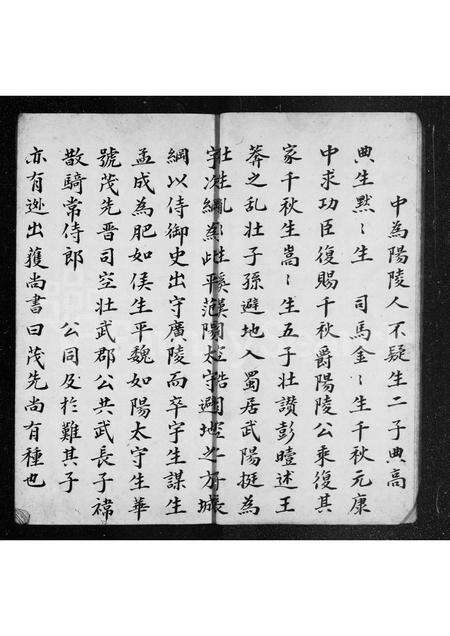 中為陽陵人不疑生二子典高
典生默〻生　司馬金〻生千秋元康
中求功臣復賜千秋爵陽陵公乘復其
家千秋生嵩〻生五子壯讃彭曀述王
莾之乱壯子孫避地入蜀居武陽挺為
綱以侍御史出守廣陵而卒宇生謀生
孟成為肥如侯生平魏如陽太守生華
號茂先晋司空壯武郡公共武長子禕
散騎常侍郎　公同及於難其子
亦有迯出獲尚書曰茂先尚有種也